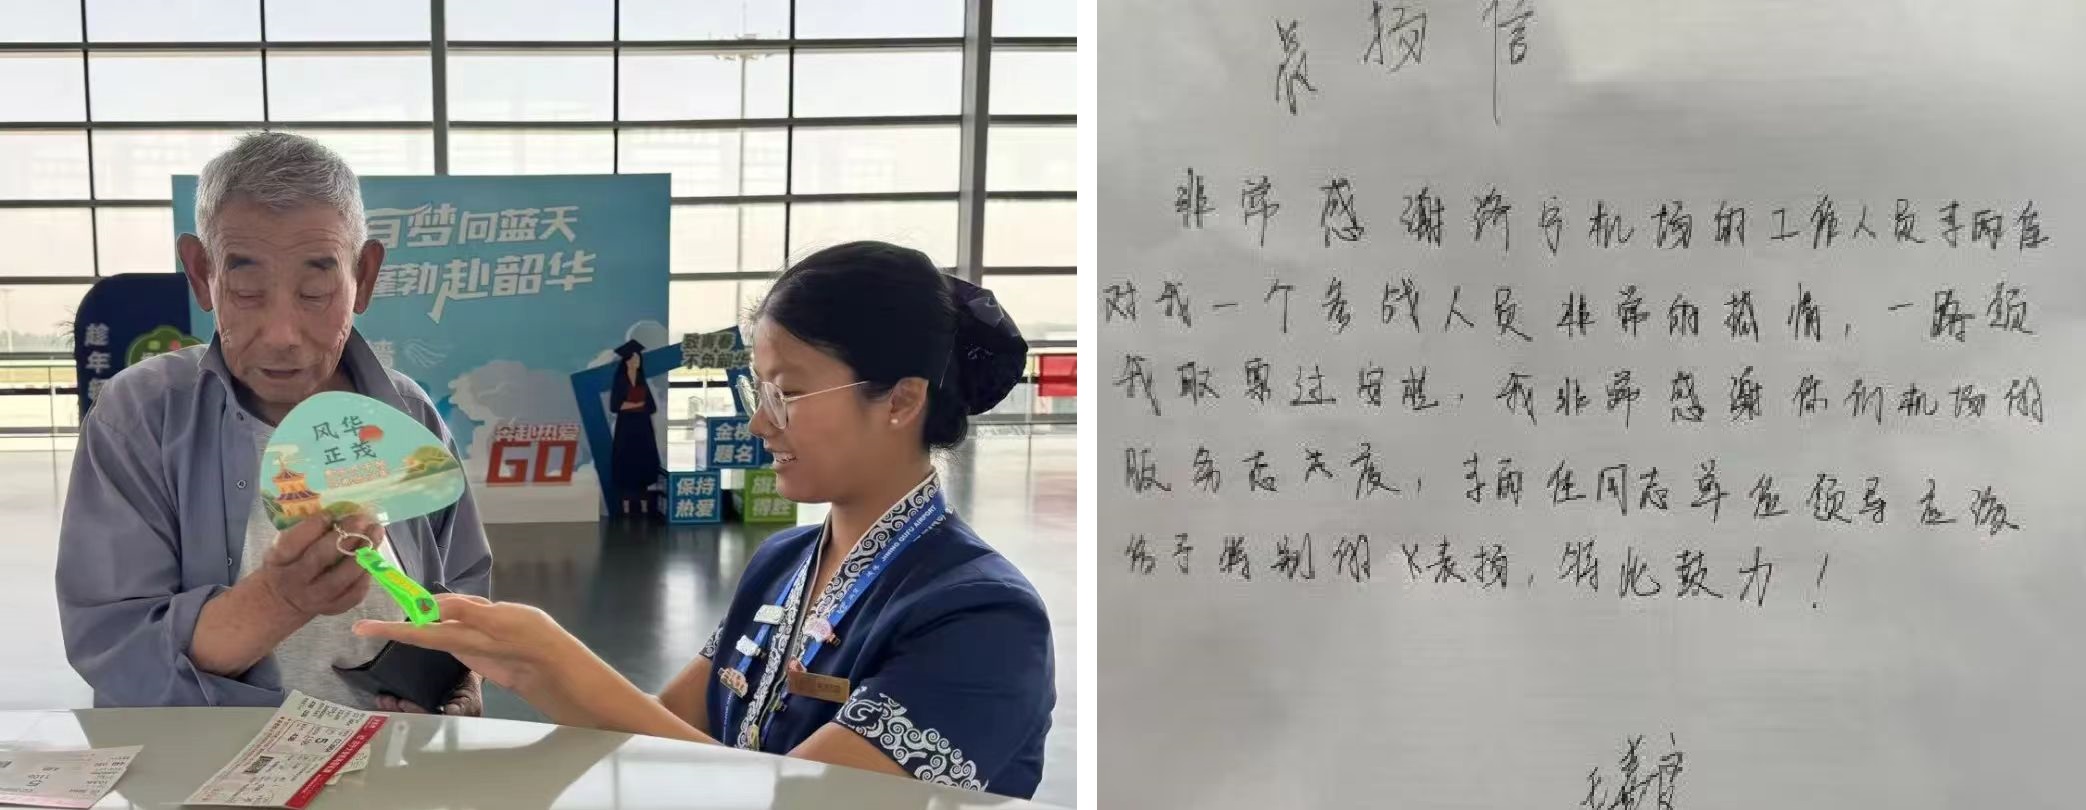 有梦问蓝天
蓬勃赴韶华
趁
年
致青春
不负韶华
奔赴热爱
GO
金榜
题名
保持
热爱
旗
得胜
风华
正茂
JINING QUFU AIRPORT
5
表扬信
非常感谢济宁机场的工作人员李丙佳
对我一个参战人员非常的热情，一路领
我取票过安检，我非常感谢你们机场的
服务态度，李丙佳同志单位领导应该
给予特别的表扬，特此鼓力！